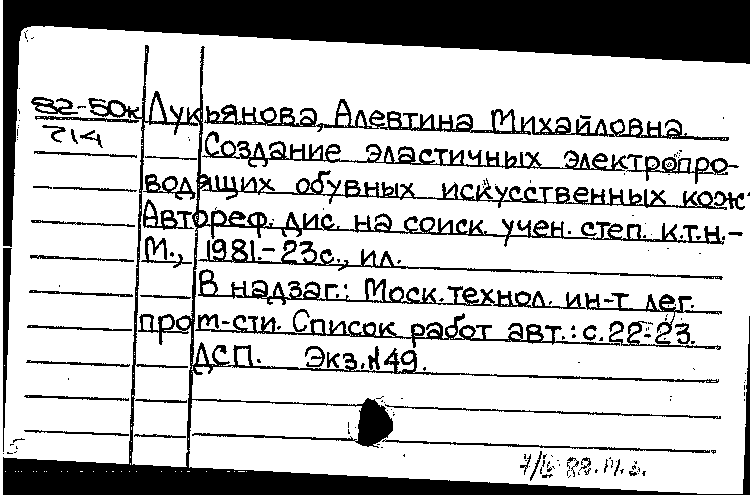 82-50к Лукьянова, Алевтина Михайловна.
214 Создание эластичных электропро-
водящих обувных искусственных кож
Автореф. дис. на соиск. учен. степ. к.т.н.-
М., 1981.-23с., ил.
В надзаг.: Моск. технол. ин-т лег.
пром-сти. Список работ авт.: с.22-23.
ДСП. Экз.№49.
5